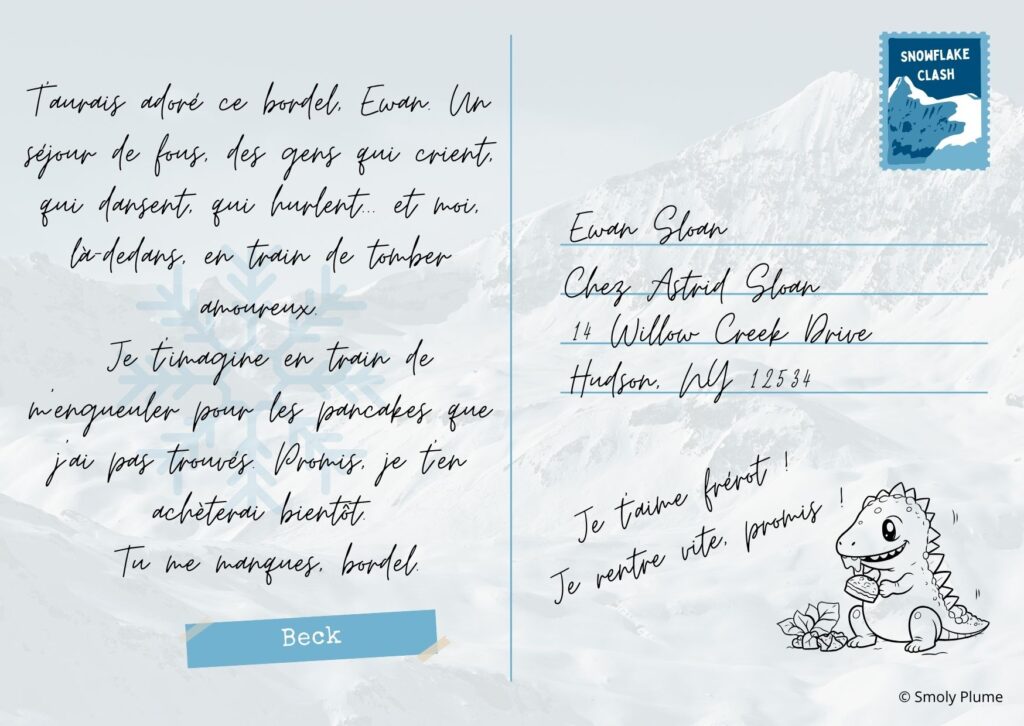 T'aurais adoré ce bordel, Ewan. Un
séjour de fous, des gens qui crient,
qui dansent, qui hurlent... et moi,
là-dedans, en train de tomber
amoureux.
Je t'imagine en train de
m'engueuler pour les pancakes que
j'ai pas trouvés. Promis, je t'en
achèterai bientôt.
Tu me manques, bordel.
Beck
SNOWFLAKE
CLASH
Ewan Sloan
Chez Astrid Sloan
14 Willow Creek Drive
Hudson, NY 12534
Je t'aime frérot !
Je rentre vite, promis !
© Smoly Plume